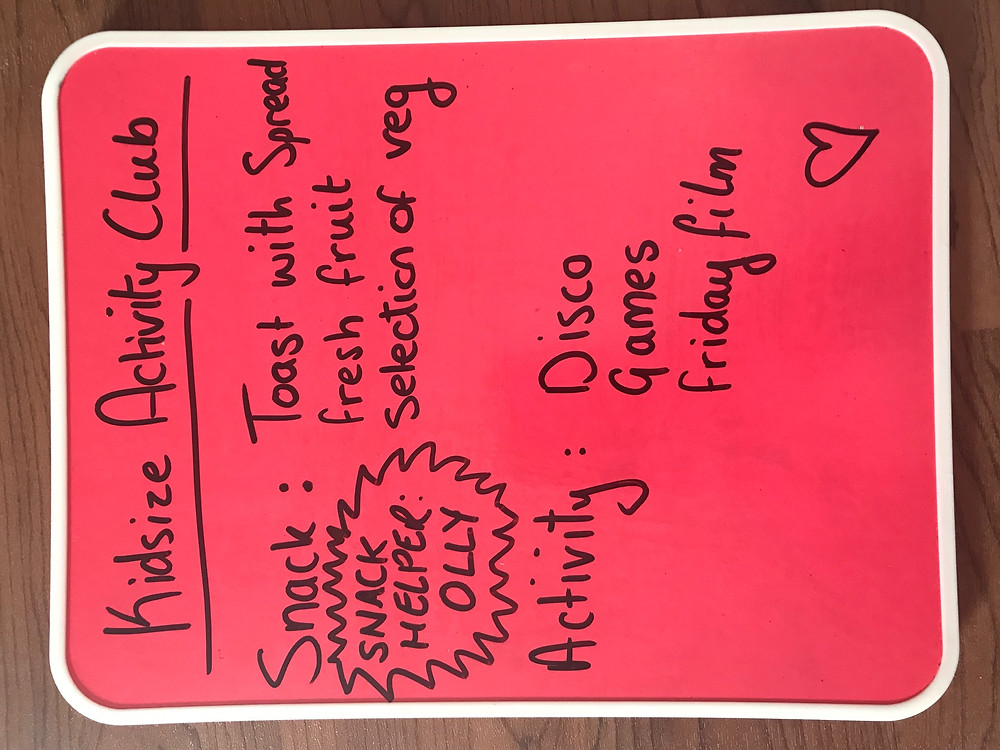 Kidsize Activity Club
Snack: Toast with Spread
fresh fruit
Selection of veg
SNACK
HELPER:
OLLY
Activity: Disco
Games
friday film